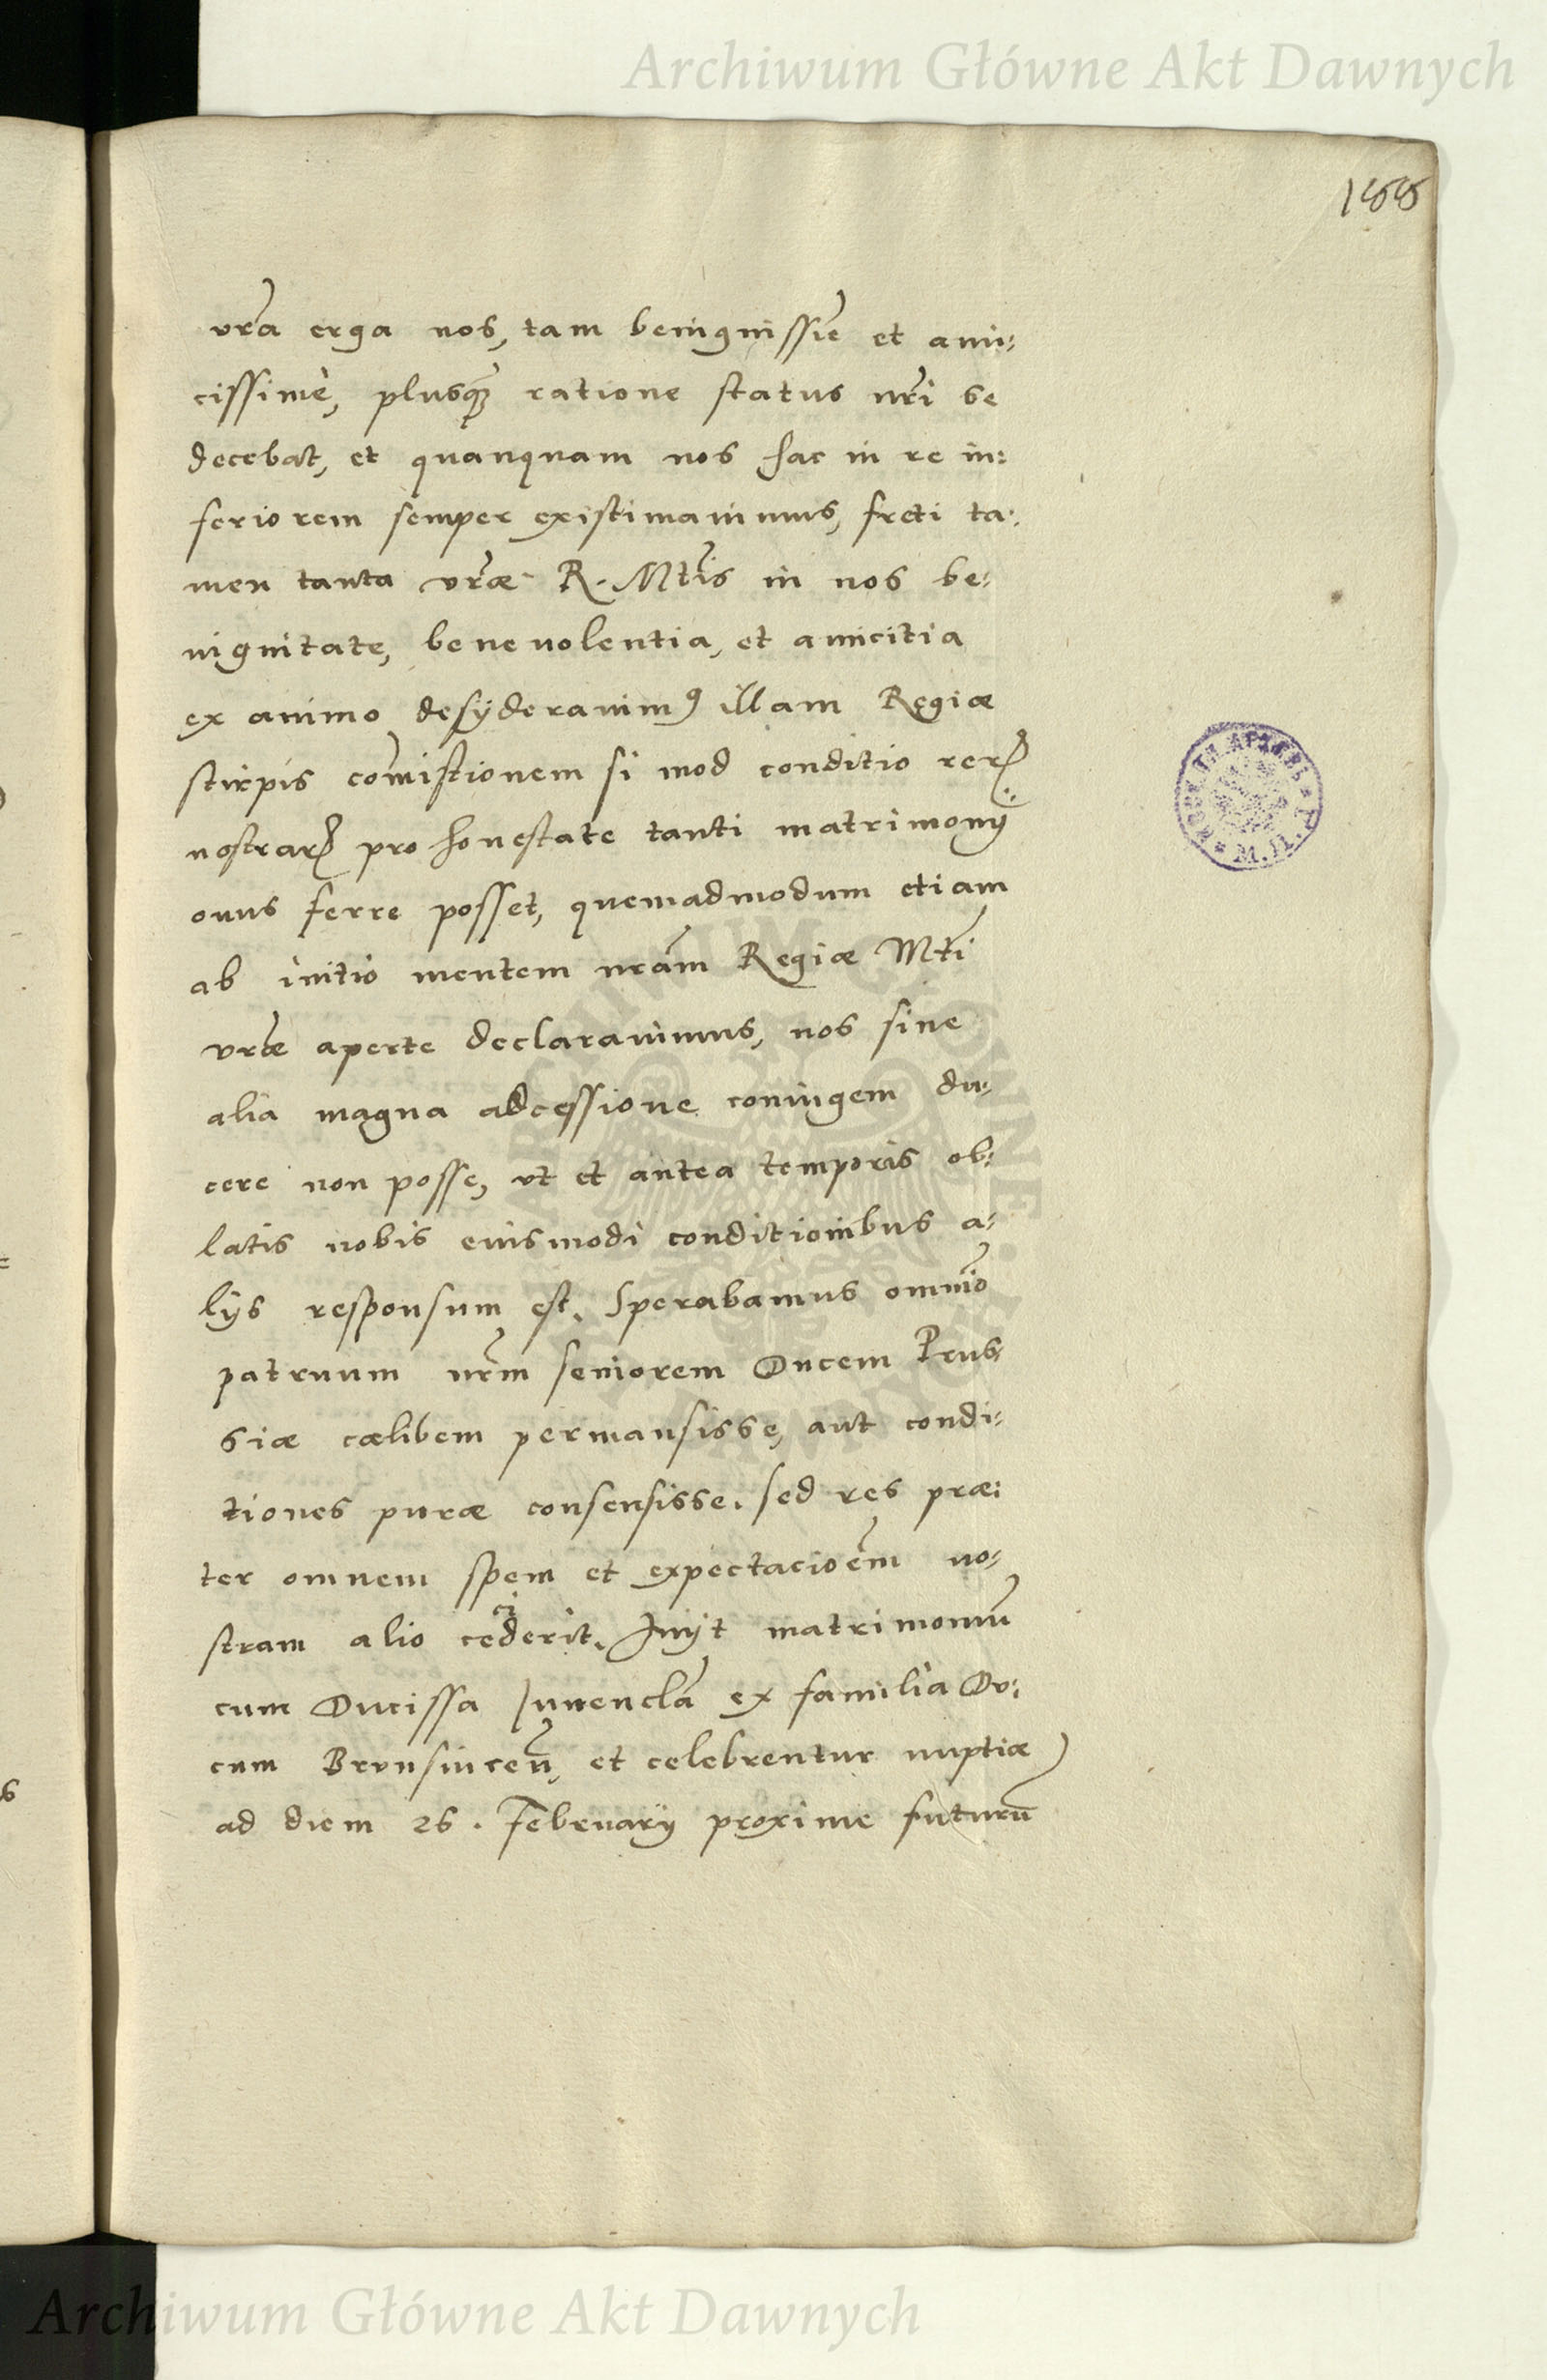 Archiwum Główne Akt Dawnych
155
vrãa erga nos, tam benignissiẽ et ami:
cissimè, plusq̃ ratione status nr̃i se
decebat, et quanquam nos hac in re in:
feriorem semper existimauimus, freti ta:
men tanta vr̃æ R. Mtĩs in nos be:
nignitate, beneuolentia, et amicitia
ex animo desÿderauimꝰ illam Regiæ
stirpis com̃istionem si mod conditio rerꝝ
nostrarꝝ pro honestate tanti matrimonÿ
onus ferre posset, quemadmodum etiam
ab initio mentem nrãm Regiæ Mtĩ
vræ̃ aperte declarauimus, nos sine
alia magna adcessione coniugem du:
cere non posse, vt et antea temporis ob:
latis nobis eiusmodi conditionibus a:
lÿs responsum est. Sperabamus omnĩo
patruum nrm̃ seniorem Ducem Prus:
siæ cœlibem permansisse, aut condi:
tiones puræ consensisse. sed res præ:
ter omnem spem et expectacioẽm no:
stram alio ceciderit. Inÿt matrimoniũ
cum Ducissa Iuuenclã ex familia Du:
cum Brunsuiceñ, et celebrentur nuptiæ
ad diem 26. Februarÿ proxime futurũ
Archiwum Główne Akt Dawnych